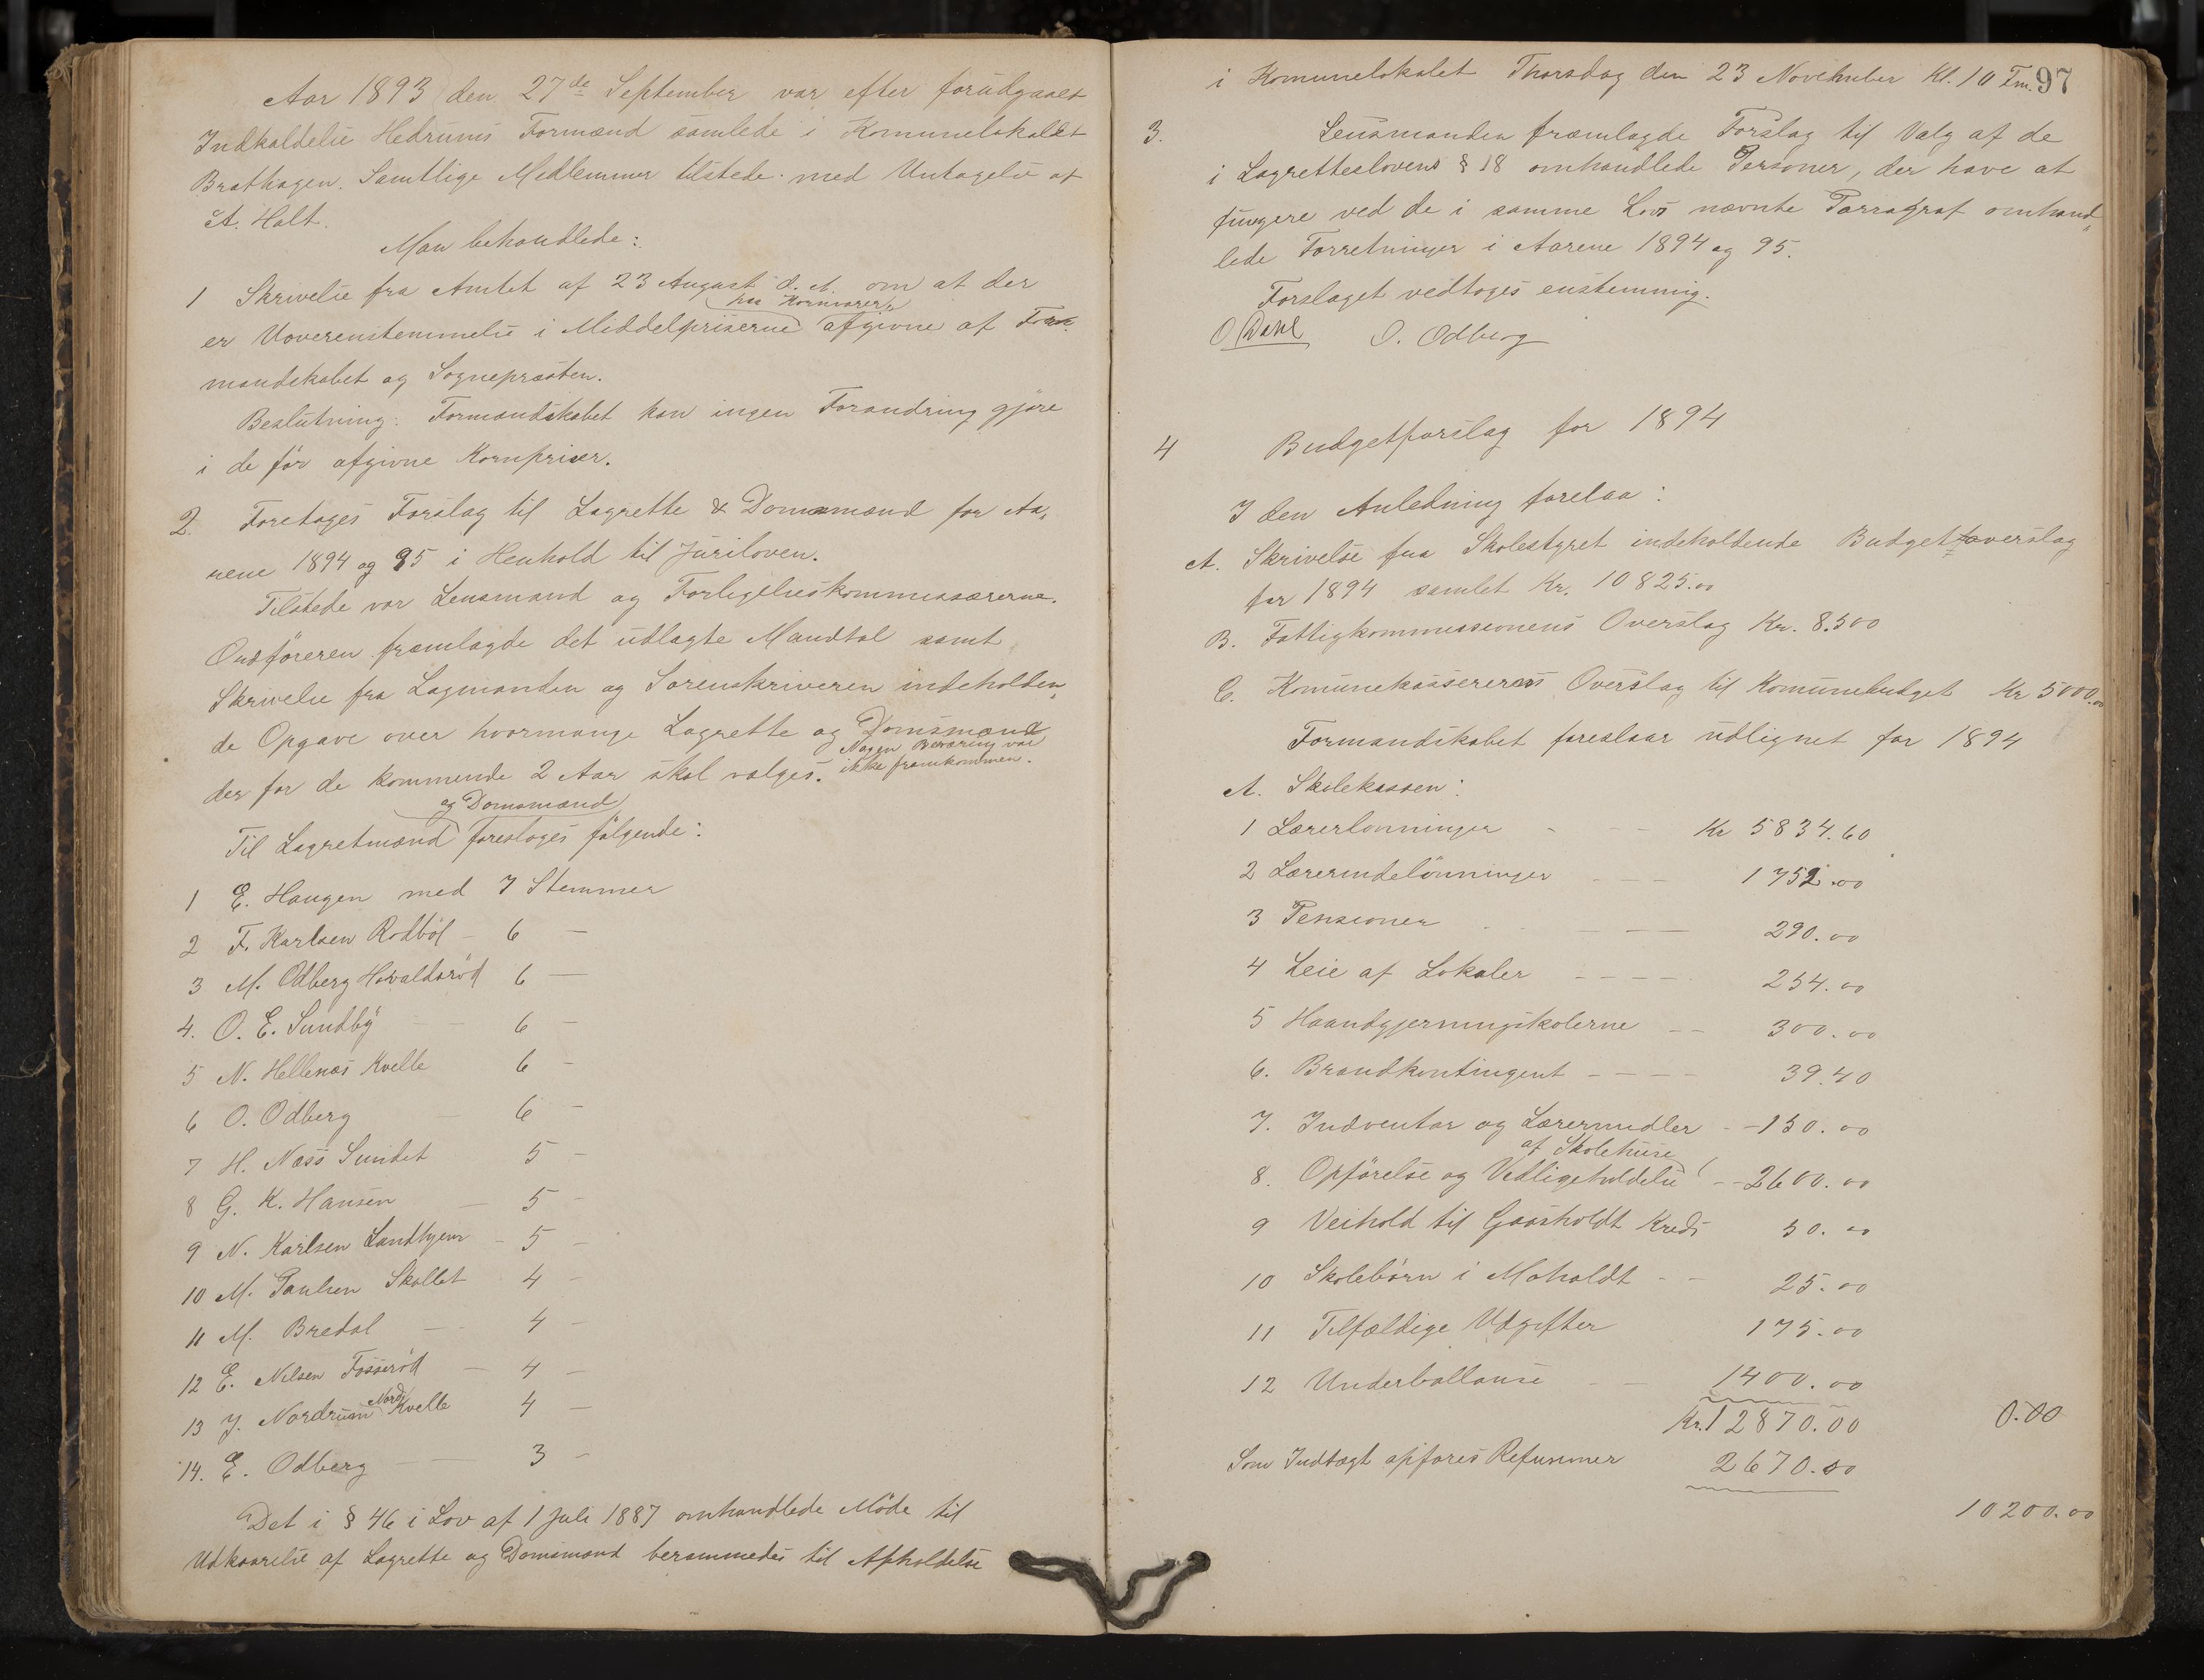 Aar 1893 den 27de September var efter forudgaaet
Indkaldelse Hedrums Formænd samlede i Komunelokalet
Brathagen. Samtlige Medlemmer tilstede med Untagelse af
A. Holt.
Man behandlede:
1 Skrivelse fra Amtet af 23 August d. A. om at der
paa Kornvarer
er Uoverenstemmelse i Middelpriserne afgivne af For-
mandskabet og Sognepræsten.
Beslutning: Formandskabet kan ingen Forandring gjøre
i de før afgivne Kornpriser.
2. Foretoges Forslag til Lagrette & Domsmænd for Aa-
rene 1894 og 95 i Henhold til Juriloven.
Tilstede var Lensmand og Forligelseskommissærerne.
Ordføreren fremlagde det udlagte Mandtal samt
Skrivelse fra Lagmanden og Sorenskriveren indeholden„
de Opgave over hvormange Lagrette og Domsmænd
der for de kommende 2 Aar skal vælges. Nogen Besværing var
ikke fremkommen.
og Domsmænd
Til Lagretmænd foresloges følgende:
1 E. Haugen med 7 Stemmer
2 F. Karlsen Rødbøl - 6 -
3 M. Odberg Hovaldsrød 6 -
4. O. E. Sundby - - 6 -
5 N. Hellenæs Kvelle 6 -
6 O. Odberg - 6 -
7 H. Næss Sundet 5 -
8 G. K. Hansen - 5 -
9 N. Karlsen Landhjem - 5 -
10 M. Paulsen Skallet 4 -
11 M. Bredal - 4 -
12 E. Nilsen Fosserød - 4 -
13 J. Nordrum Nord Kvelle 4 -
14. E. Odberg - - 3 -
Det i § 46 i Lov af 1 Juli 1887 omhandlede Møde til
Udkaarelse af Lagrette og Domsmænd berammedes til Afholdelse
i Komunelokalet Thorsdag den 23 November Kl. 10 Fm. 97
3. Lensmanden fremlagde Forslag til Valg af de
i Lagretteslovens § 18 omhandlede Personer, der have at
fungere ved de i samme Lovs nævnte Parragraf omhand„
lede Forretninger i Aarene 1894 og 95.
Forslaget vedtoges enstemmig.
O Dahl O. Odberg
4 Budgetforslag for 1894
I den Anledning forelaa:
A. Skrivelse fra Skolestyret indeholdende Budgetoverslag
for 1894 samlet Kr. 10825.00
B. Fattigkommissionens Overslag Kr. 8.500
C. Komunekassererens Overslag til Komunebudget Kr 5000.00
Formandskabet foreslaar udlignet for 1894
A. Skolekassen:
1 Lærerlønninger - - - Kr 5834.60
2 Lærerindelønninger - - - 1752.00
3 Pensioner - - 290.00
4 Leie af Lokaler - - - - 254.00
5 Haandgjerningskolerne - - 300.00
6. Brandkontingent - - - - 39.40
7. Indventar og Lærermidler - - 150.00
af Skolehuse
8. Opførelse og Vedligeholdelse - - 2600.00
9 Veihold til Gaasholdt Kreds 50.00
10 Skolebørn i Moholdt - - 25.00
11 Tilfældige Udgifter 175.00
12 Underballanse - - 1400.00
Kr. 12870.00 0.00
Som Indtægt opføres Refusioner 2670.00
10200.00